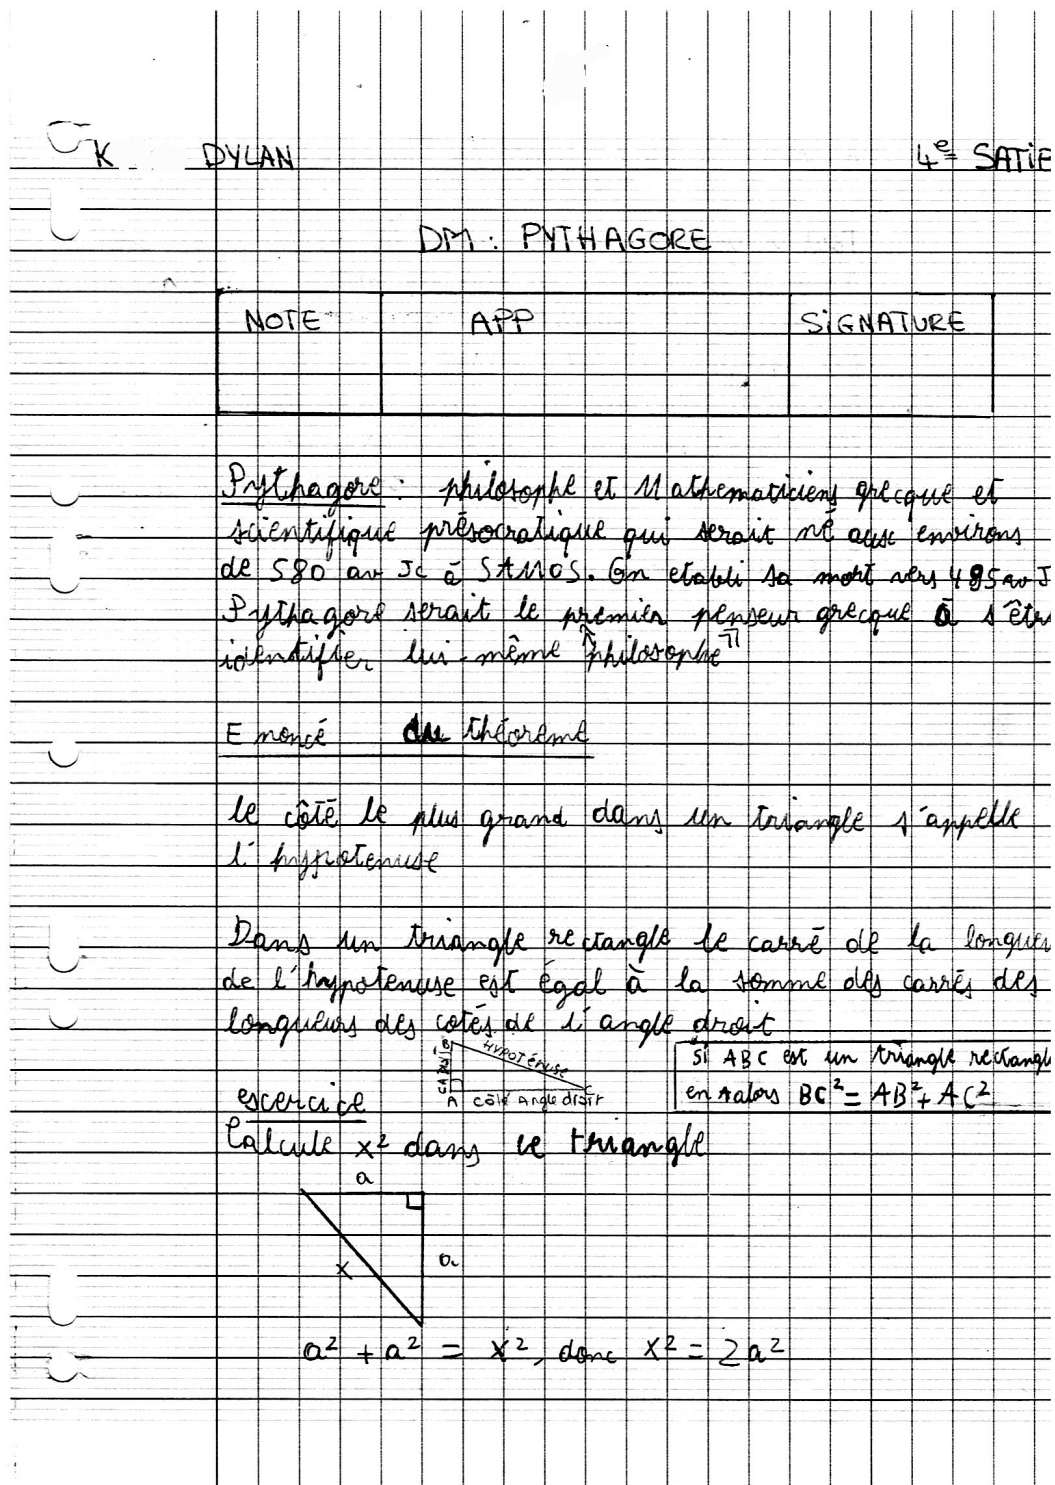 K DYLAN 4e SATIE
DM : PYTHAGORE
NOTE APP SiGNATURE
Pythagore : philosophe et Mathematiciens grecque et
scientifique présocratique qui serait né aux environs
de 580 av Jc à SAMOS. On etabli sa mort vers 495 av J
Pythagore serait le premier penseur grecque à s'êtr
identifier lui-même "philosophe"
Enoncé du théorème
le côté le plus grand dans un triangle s'appelle
l'hypotenuse
Dans un triangle rectangle le carré de la longueu
de l'hypotenuse est égal à la somme des carrés des
longueurs des cotés de l'angle droit
B HYPOTÉNUSE C
A côté Angle droit
Si ABC est un triangle rectangle
en A alors BC² = AB² + AC²
escercice
Calcule x² dans ce triangle
a
a
x
a² + a² = x², donc x² = 2a²